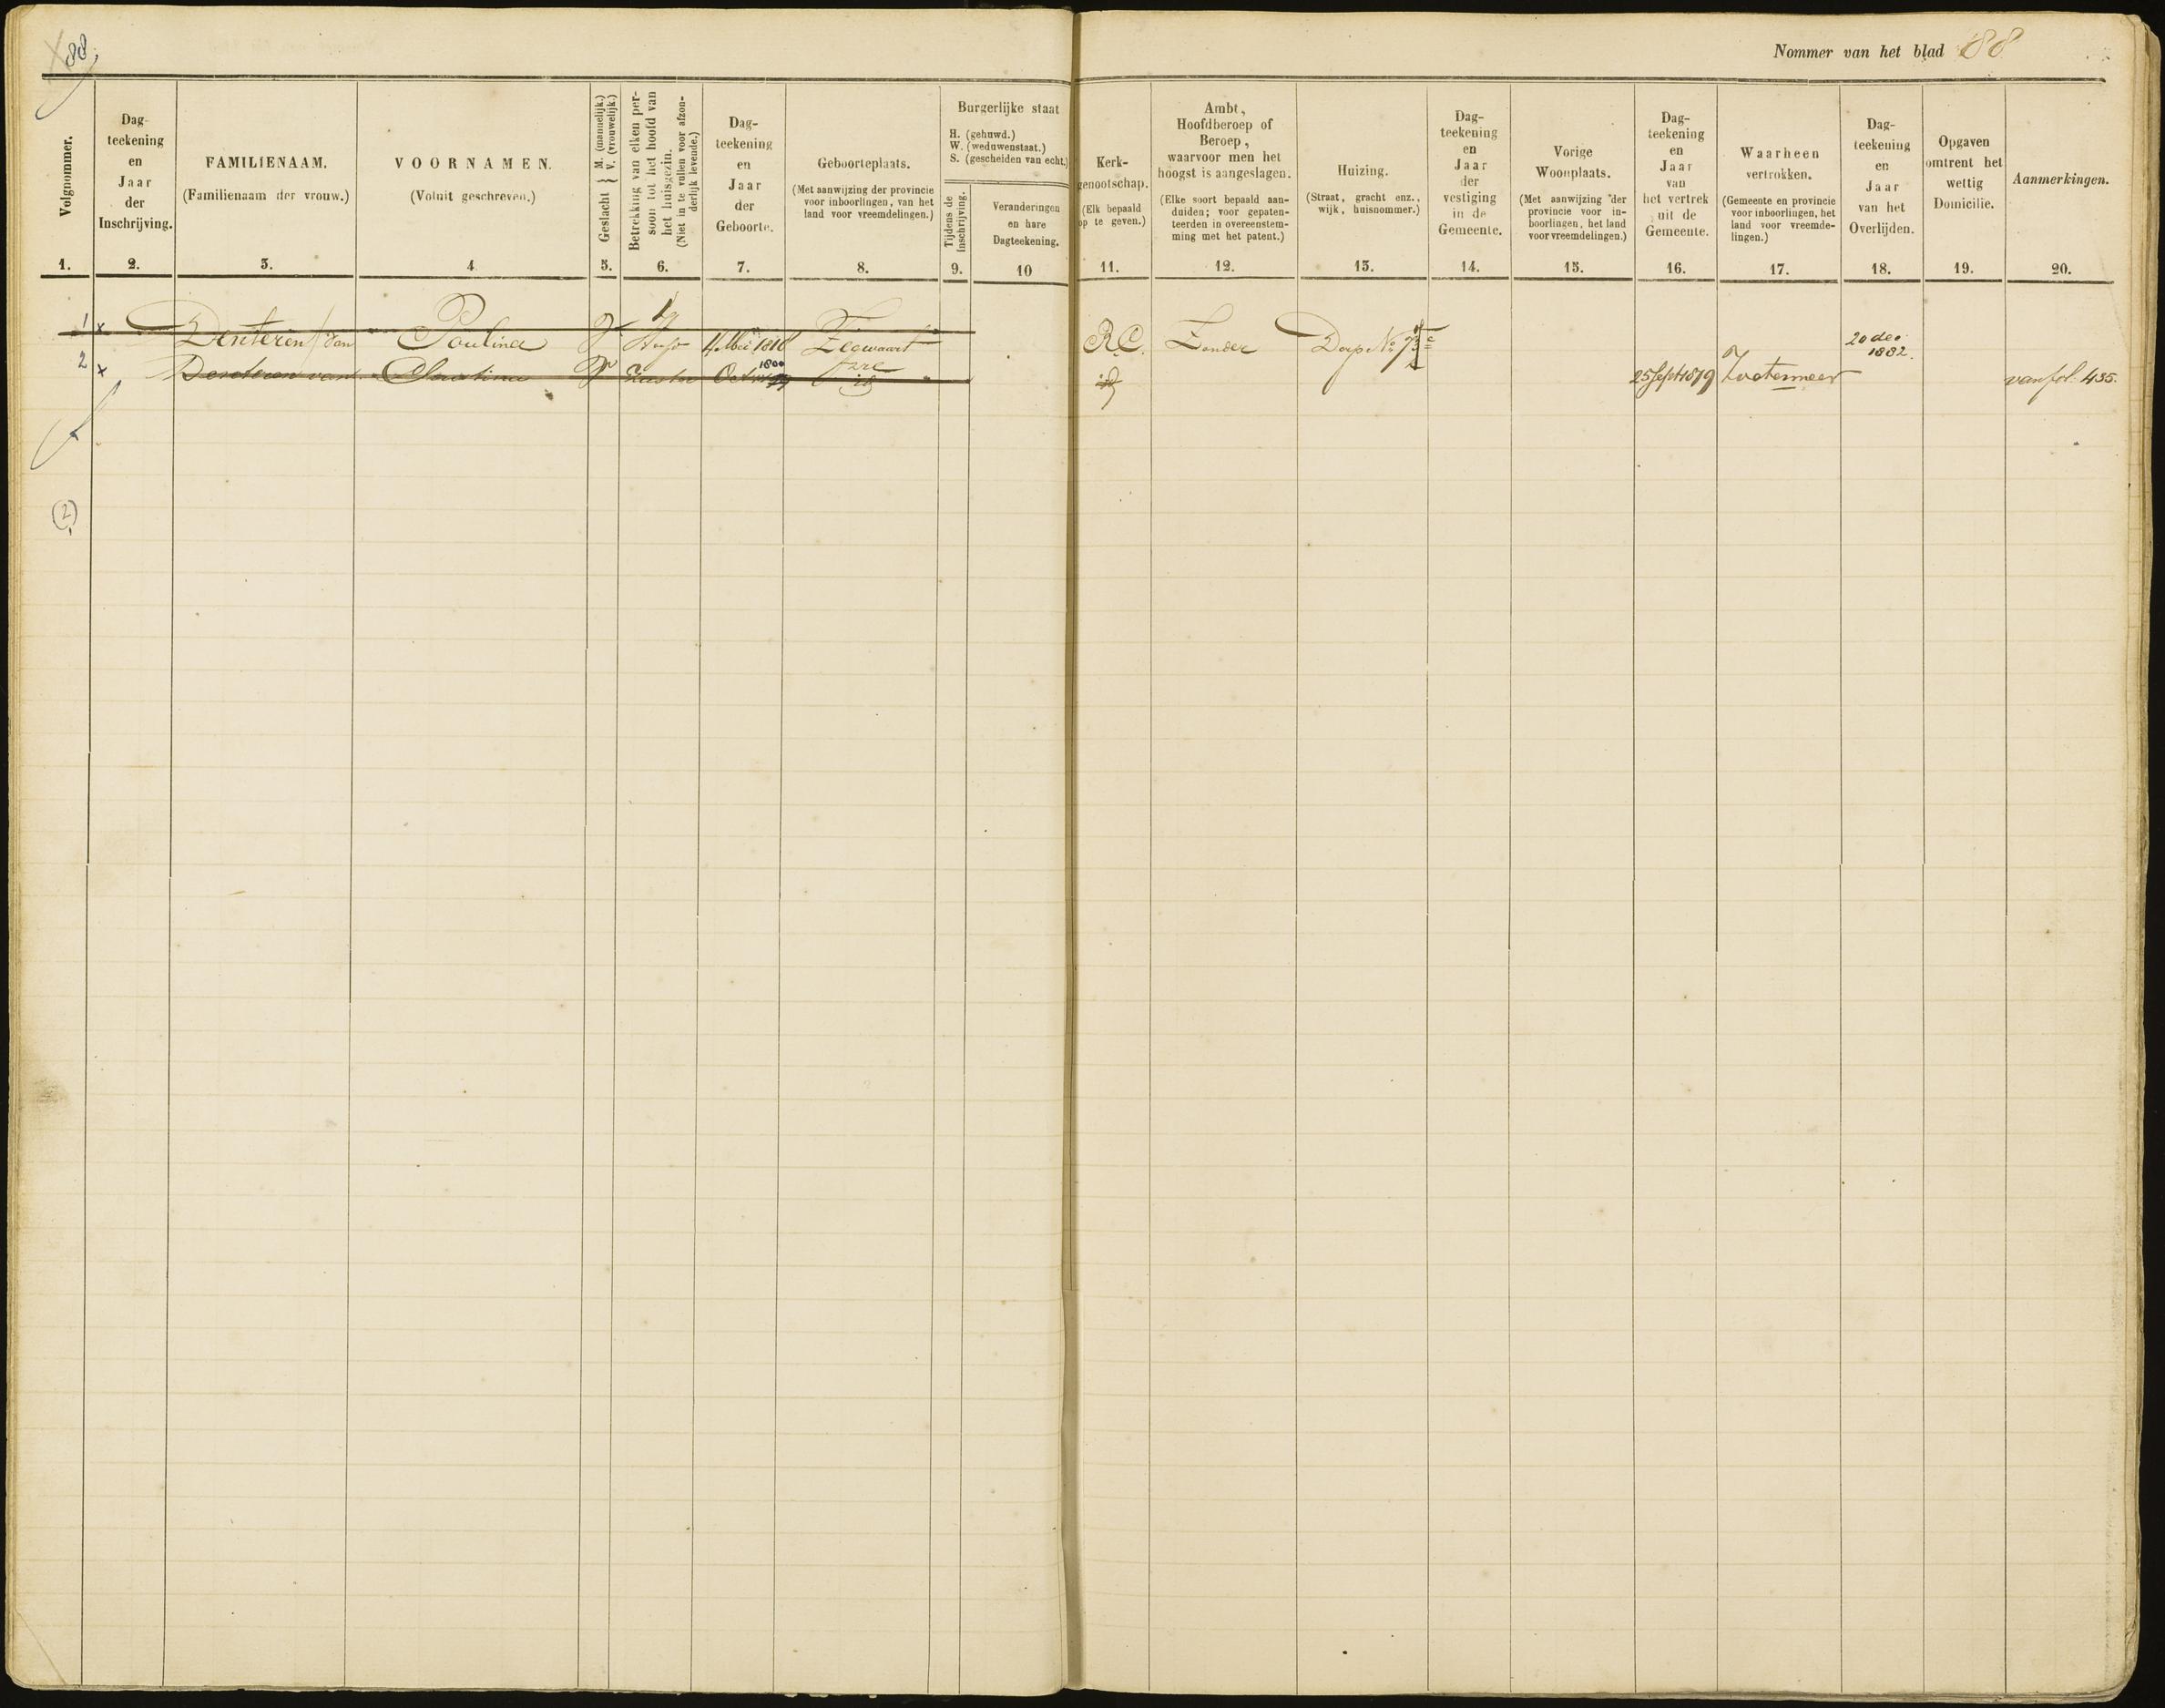 88
Nommer van het blad 88
Volgnommer.
1.
Dag-
teekening
en
Jaar
der
Inschrijving.
2.
FAMILIENAAM.
(Familienaam der vrouw.)
3.
VOORNAMEN.
(Voluit geschreven.)
4
Geslacht { M. (mannelijk.)
V. (vrouwelijk.)
5.
Betrekking van elken per-
soon tot het hoofd van
het huisgezin.
(Niet in te vullen voor afzon-
derlijk levende.)
6.
Dag-
teekening
en
Jaar
der
Geboorte.
7.
Geboorteplaats.
(Met aanwijzing der provincie
voor inboorlingen, van het
land voor vreemdelingen.)
8.
Burgerlijke staat
H. (gehuwd.)
W. (weduwenstaat.)
S. (gescheiden van echt.)
Tijdens de
Inschrijving.
9.
Veranderingen
en hare
Dagteekening.
10
Kerk-
genootschap.
(Elk bepaald
op te geven.)
11.
Ambt,
Hoofdberoep of
Beroep,
waarvoor men het
hoogst is aangeslagen.
(Elke soort bepaald aan-
duiden; voor gepaten-
teerden in overeenstem-
ming met het patent.)
12.
Huizing.
(Straat, gracht enz.,
wijk, huisnommer.)
13.
Dag-
teekening
en
Jaar
der
vestiging
in de
Gemeente.
14.
Vorige
Woonplaats.
(Met aanwijzing der
provincie voor in-
boorlingen, het land
voor vreemdelingen.)
15.
Dag-
teekening
en
Jaar
van
het vertrek
uit de
Gemeente.
16.
Waarheen
vertrokken.
(Gemeente en provincie
voor inboorlingen, het
land voor vreemde-
lingen.)
17.
Dag-
teekening
en
Jaar
van het
Overlijden.
18.
Opgaven
omtrent het
wettig
Domicilie.
19.
Aanmerkingen.
20.
1 x Denteren van Paulina V 4 Mei 1810 Zegwaart R.C. Zonder Dorp No 20 dec. 1882.
2 x Denteren van Christina V Zuster Oct 1800 id id 25 Sept 1879 Zoetermeer van fol. 435.
(2)